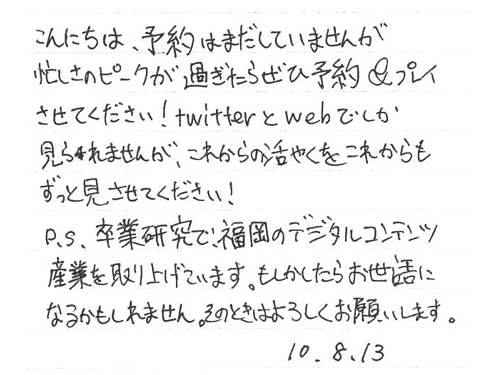 こんにちは、予約はまだしていませんが
忙しさのピークが過ぎたらぜひ予約&プレイ
させてください!twitterとwebでしか
見られませんが、これからの活やくをこれからも
ずっと見させてください!
P.S、卒業研究で福岡のデジタルコンテンツ
産業を取り上げています。もしかしたらお世話に
なるかもしれません。そのときはよろしくお願いします。
10.8.13